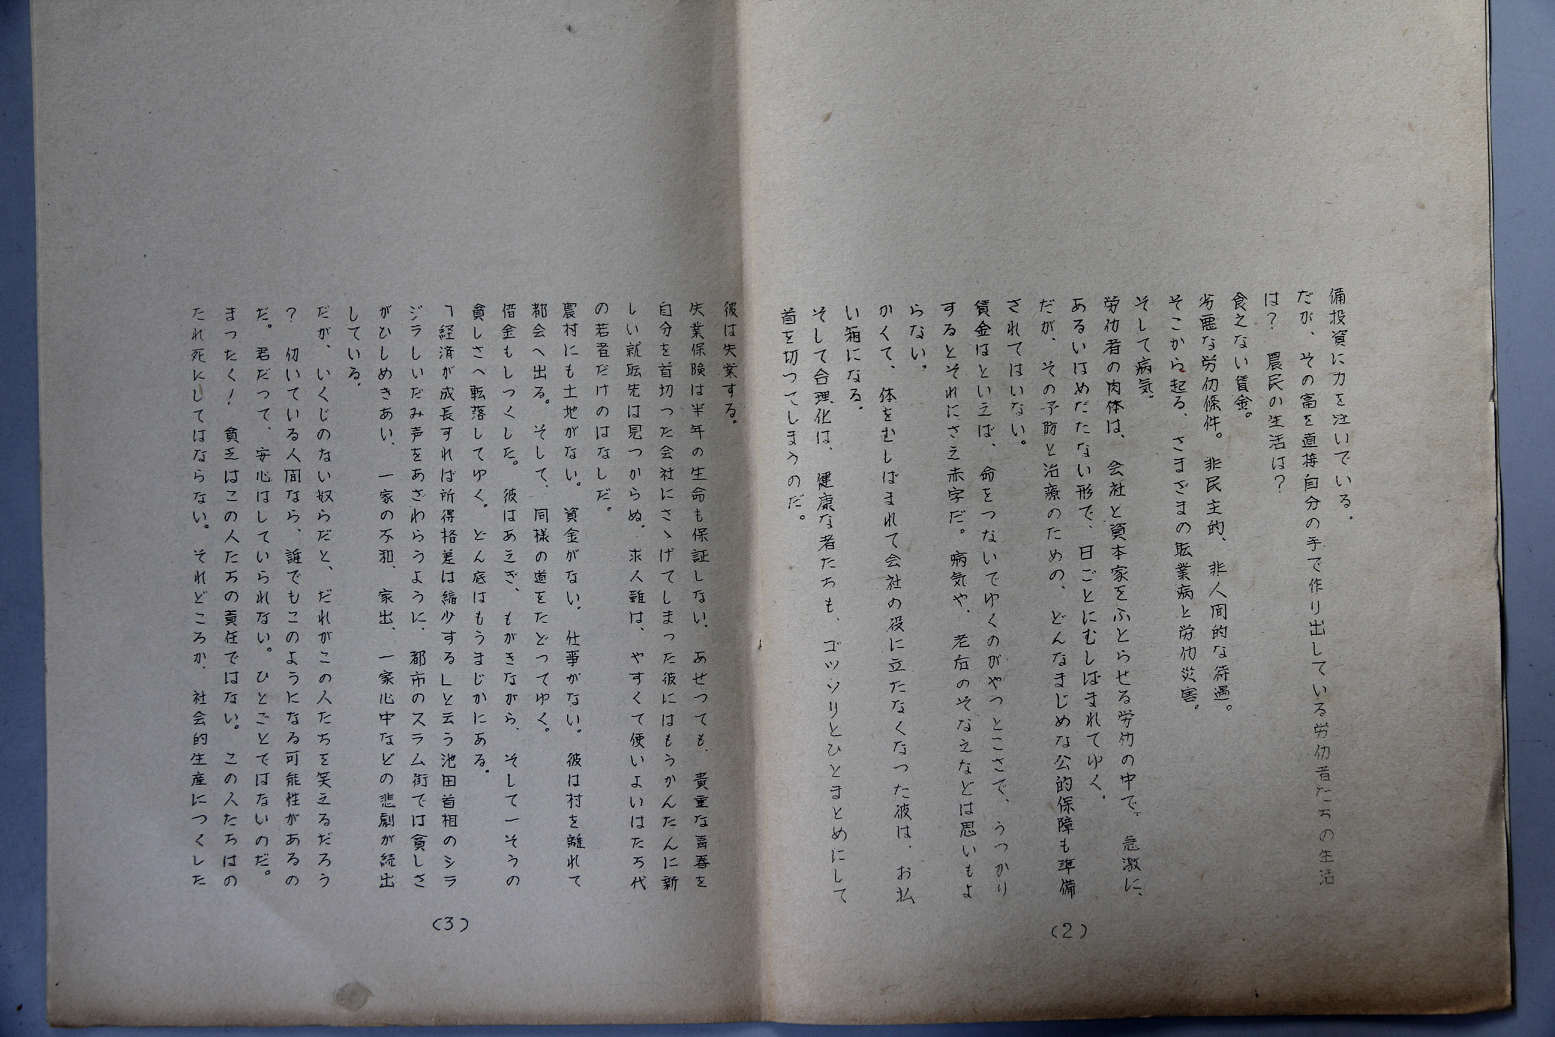 備投資に力を注いでいる。
だが、その富を直接自分の手で作り出している労仂者たちの生活
は?　農民の生活は?
食えない賃金。
劣悪な労仂條件。非民主的、非人間的な待遇。
そこから起る、さまざまの転業病と労仂災害。
そして病気。
労仂者の肉体は、会社と資本家をふとらせる労仂の中で、急激に、
あるいはめだたない形で、日ごとにむしばまれてゆく。
だが、その予防と治療のための、どんなまじめな公的保障も準備
されてはいない。
賃金はといえば、命をつないでゆくのがやつとこさで、うつかり
するとそれにさえ赤字だ。病気や、老后のそなえなどは思いもよ
らない。
かくて、体をむしばまれて会社の役に立たなくなった彼は、お払
い箱になる。
そして合理化は、健康な者たちも、ゴッソリとひとまとめにして
首を切つてしまうのだ。
(2)
彼は失業する。
失業保険は半年の生命も保証しない、あせつても、貴重な青春を
自分を首切つた会社にさゝげてしまった彼にはもうかんたんに新
しい就転先は見つからぬ。求人難は、やすくて使いよいはたち代
の若者だけのはなしだ。
農村にも土地がない。資金がない、仕事がない。彼は村を離れて
都会へ出る。そして、同様の道をたどつてゆく。
借金もしつくした。彼はあえぎ、もがきながら、そして一そうの
貧しさへ転落してゆく。どん底はもうまじかにある。
「経済が成長すれば所得格差は縮少する」と云う池田首相のシラ
ジラしいだみ声をあざわらうように、都市のスラム街では貧しさ
がひしめきあい、一家の不和、家出、一家心中などの悲劇が続出
している。
だが、いくじのない奴らだと、だれがこの人たちを笑えるだろう
?　仂いている人間なら、誰でもこのようになる可能性があるの
だ。君だって、安心はしていられない。ひとごとではないのだ。
まつたく!　貧乏はこの人たちの責任ではない。この人たちはの
たれ死にしてはならない。それどころか、社会的生産につくした
(3)